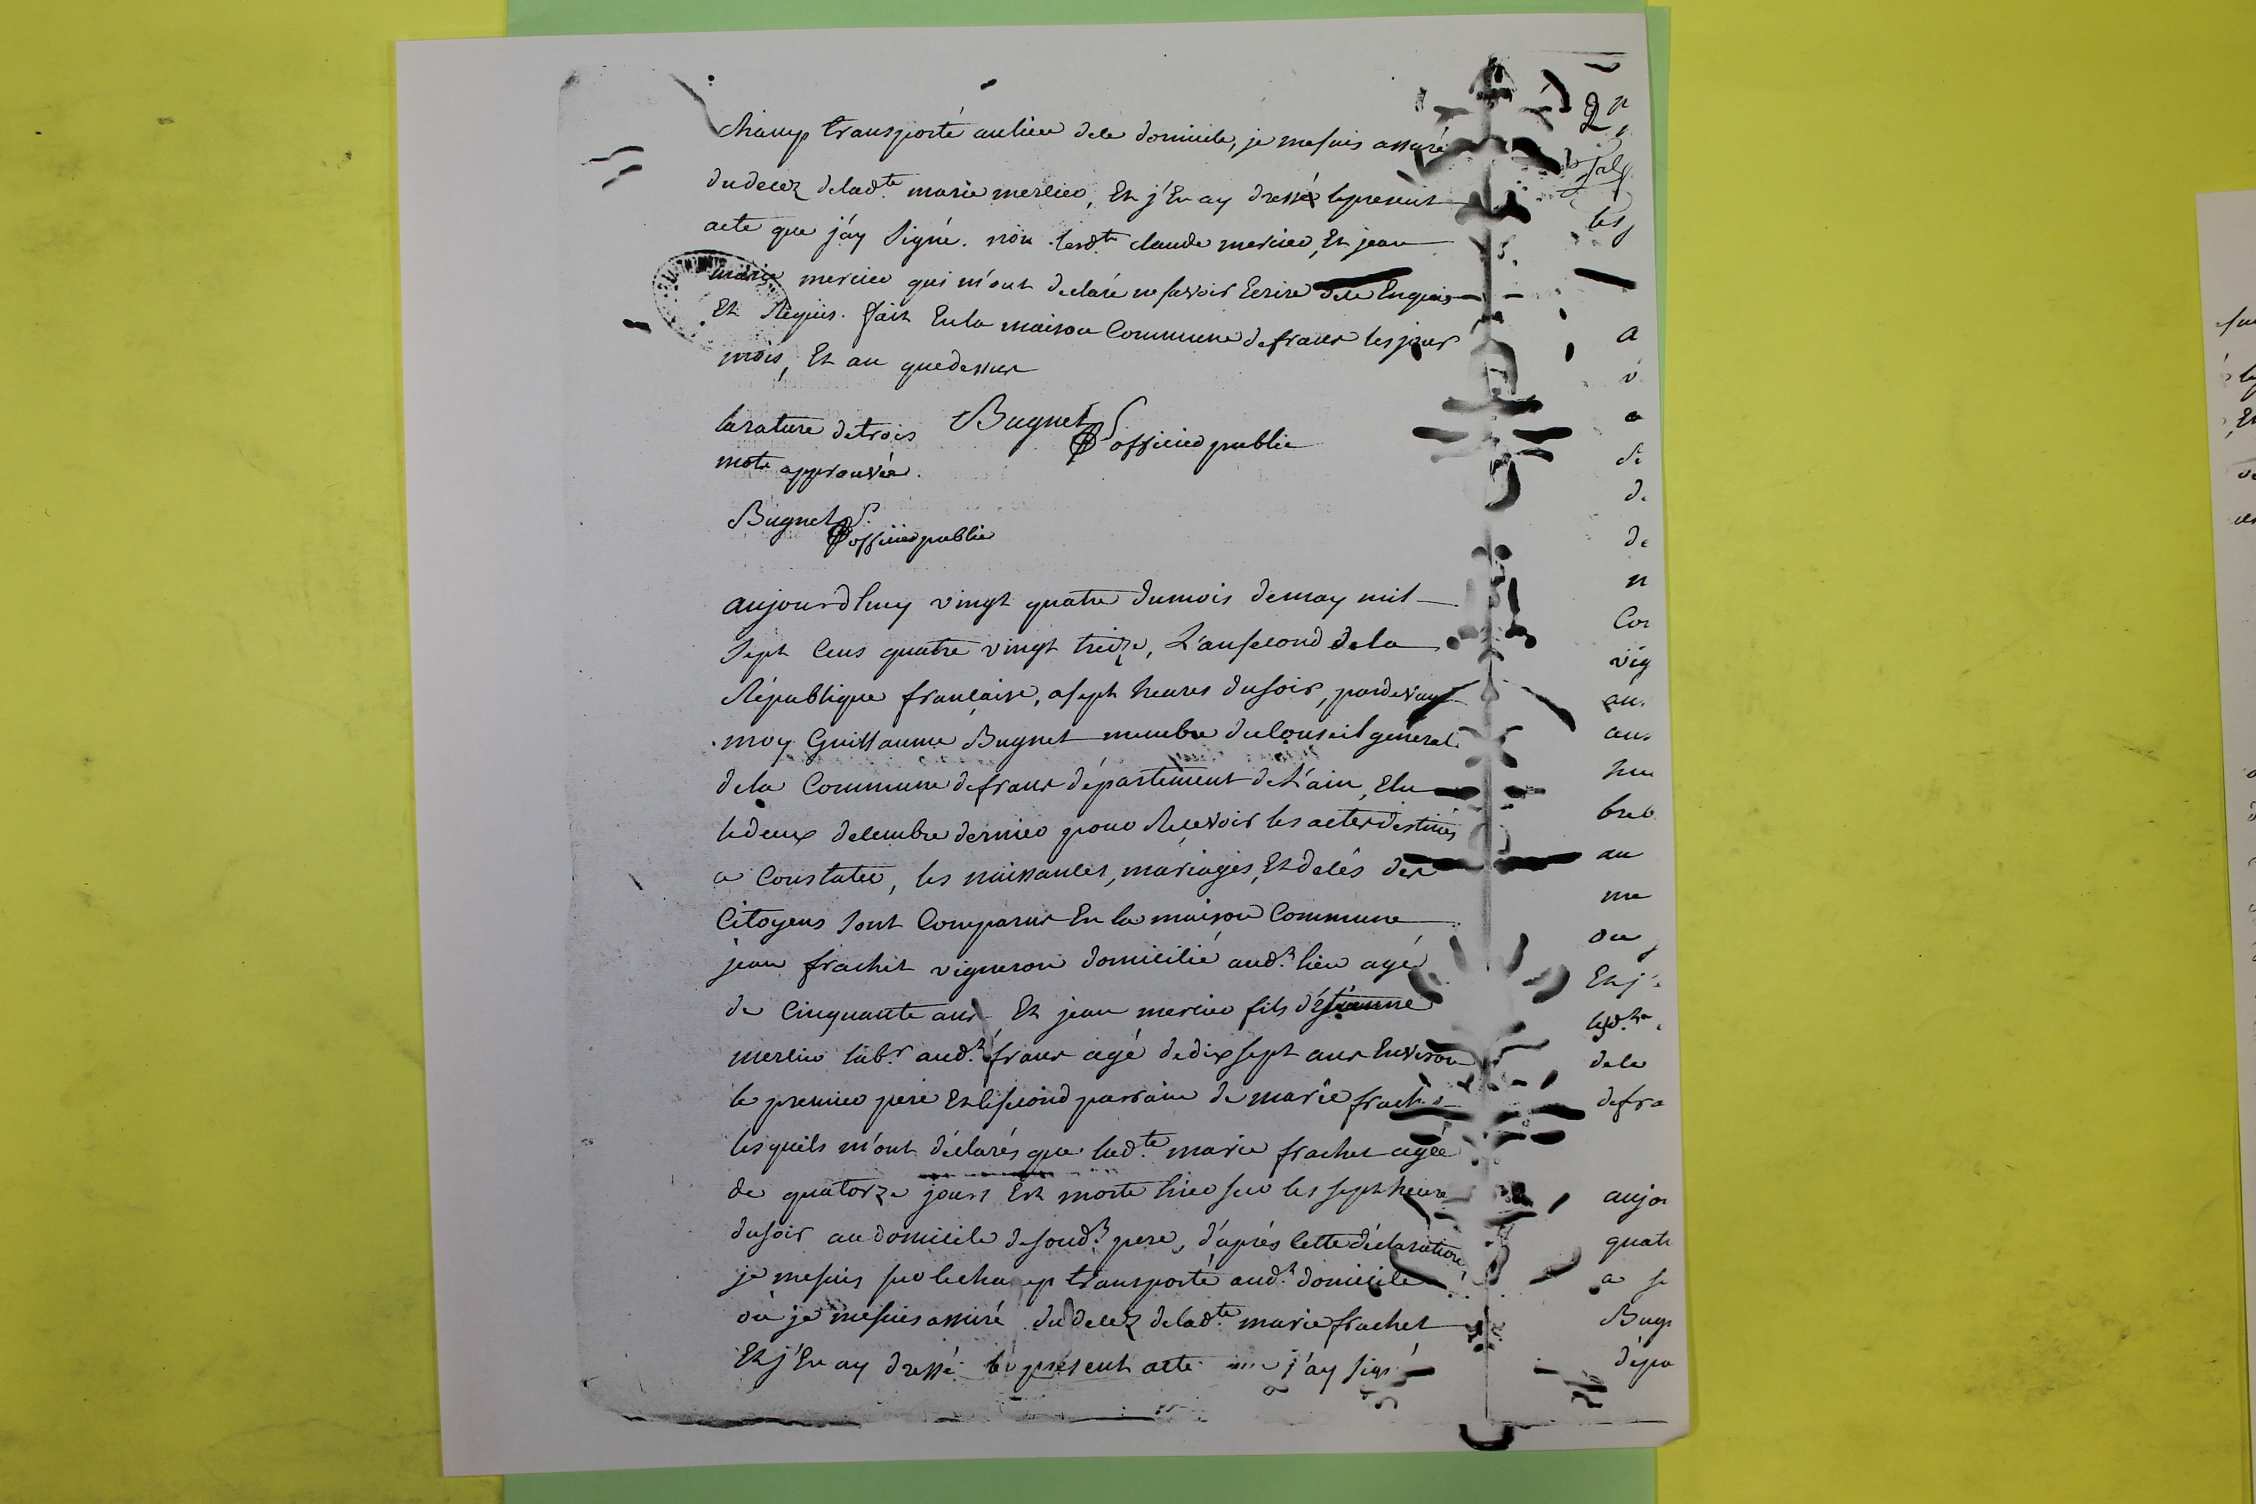 champ transporté au lieu de le domicile, je me suis assuré
du decez de lad.te marie mercier, Et j'En ay dressé le present
acte que j'ay signé. non lesd.ts claude mercier, Et jean
marie mercier qui m'ont declaré ne savoir Ecrire de ce Enquis
Et Requis. fait En la maison Commune de frans les jour
mois, Et an que dessus
la rature de trois
mots approuvée.
Bugnet officier public
Bugnet officier public
aujourd'huy vingt quatre du mois de may mil
sept cens quatre vingt treize, L'an second de la
République française, a sept heures du soir, pardevant
moy Guillaume Bugnet membre du Conseil general
de la Commune de frans département de L'ain, Elu
le deux decembre dernier pour Recevoir les actes destinés
a Constater, les naissances, mariages, Et décés des
Citoyens sont Comparus En la maison Commune
jean frachet vigneron domicilié aud.t lieu agé
de Cinquante ans Et jean mercier fils d'étienne
mercier lab.r aud.t frans agé de dix sept ans Environ
le premier pere Et le second parrain de marie frachet
lesquels m'ont déclarés que lad.te marie frachet agée
de quatorze jours Est morte hier sur les sept heures
du soir au domicile de sond.t pere, d'après cette déclaration,
je me suis sur le champ transporté aud.t domicile
où je me suis assuré du decez de lad.te marie frachet
Et j'En ay dressé le présent acte que j'ay signé
2
les
A
de
n
Cor
vig
au
me
ou
Et j'
lesd.ts
de le
de fra
aujo
quatr
a se
Bugn
dépa